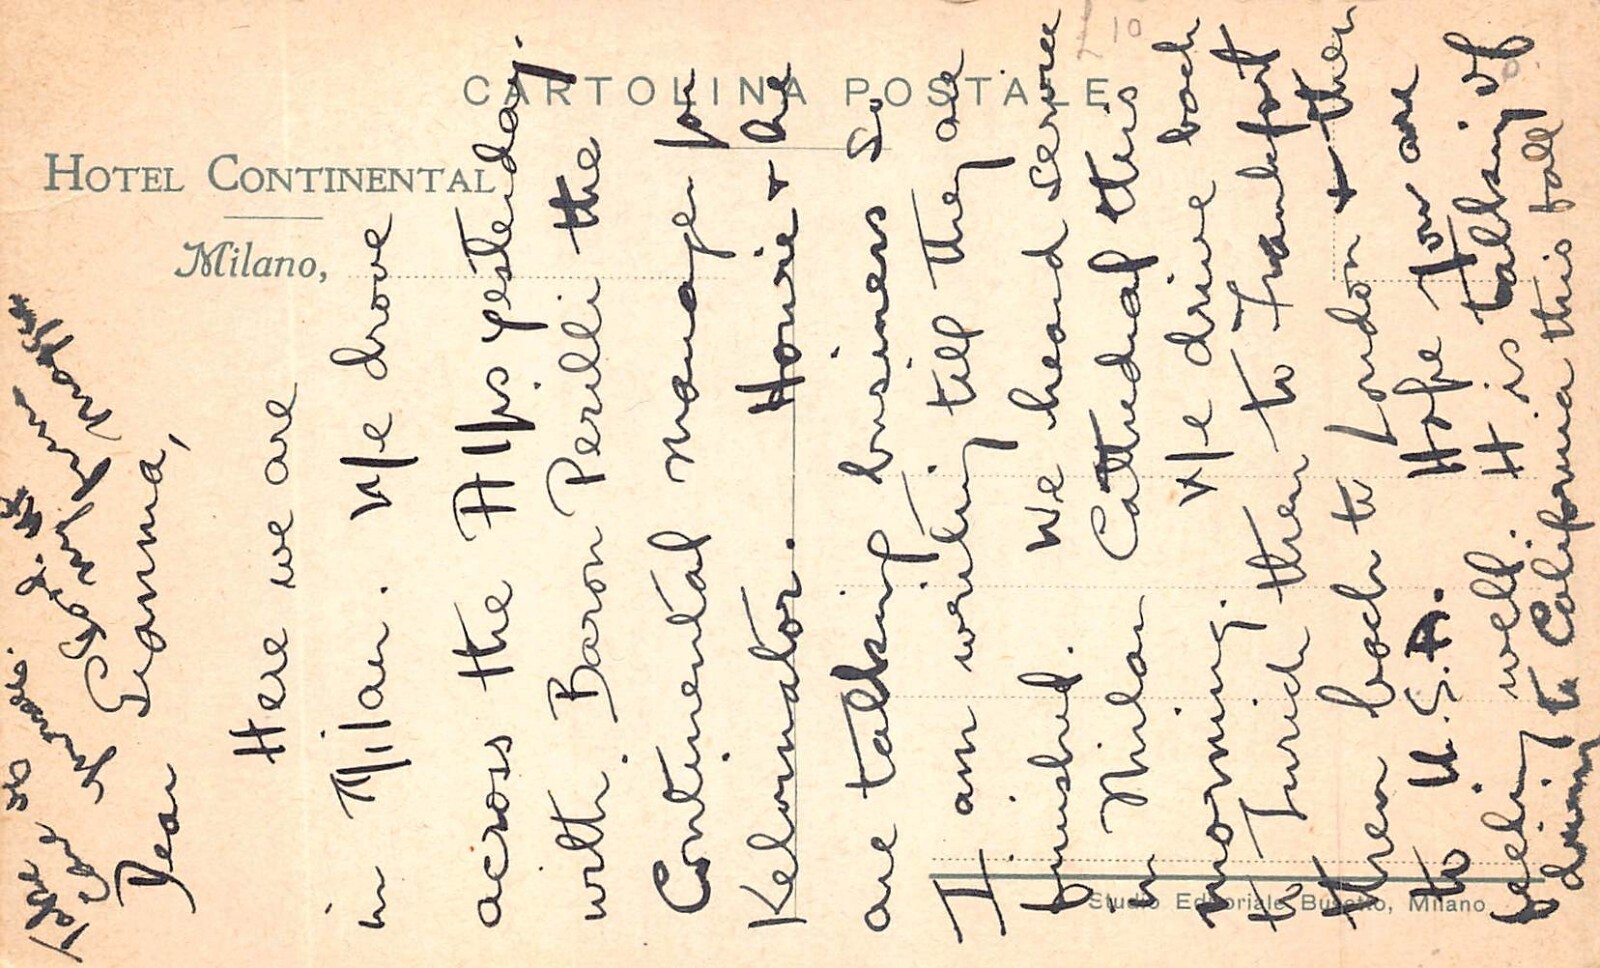 CARTOLINA POSTALE
HOTEL CONTINENTAL
Milano,
Dear Gramma,
Here we are
in Milan. We drove
across the Alps yesterday.
with Baron Perilli the
Continental manager for
Kelvinator. Howie & he
are talking business so
I am writing till they are
finished. We heard service
in Milan Cathedral this
morning. We drive back
to Zurich then to Frankfort
then back to London & then
to U.S.A. Hope you are
feeling well. H is talking of
driving to California this fall
Take
Studio Editoriale Busetto, Milano
10